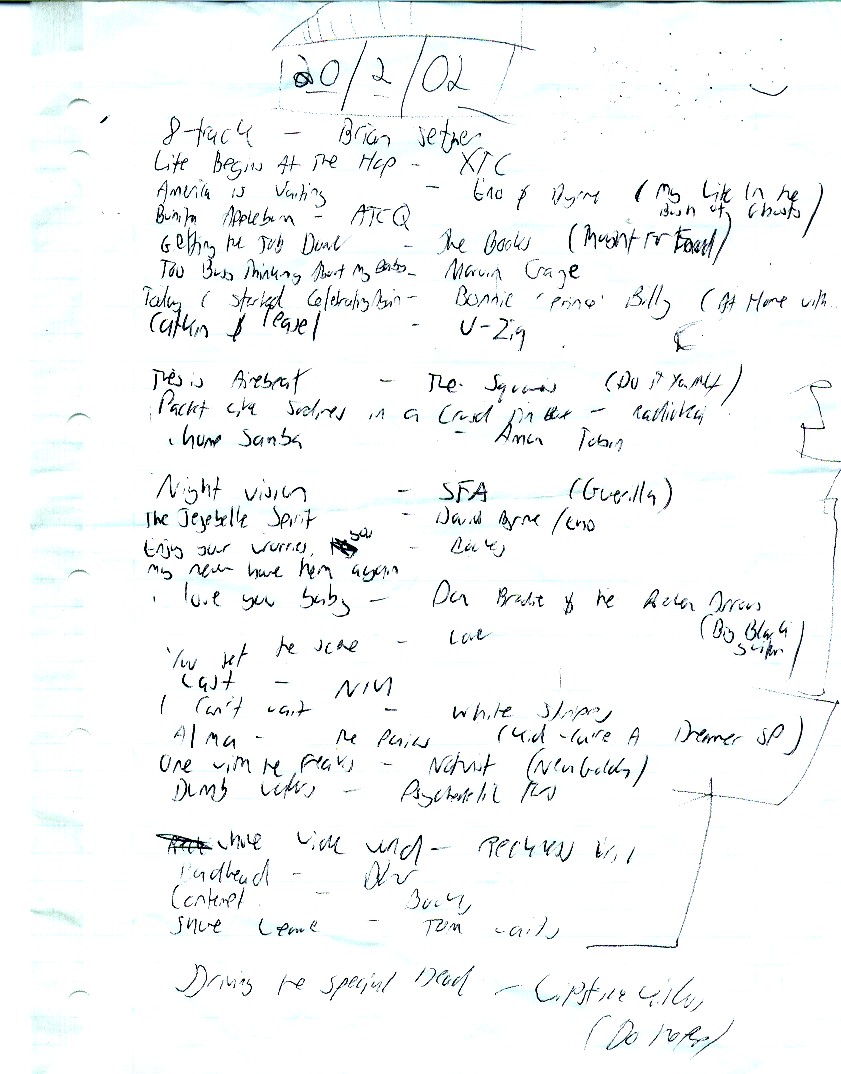 20/2/02
8-track - Brian Setzer
Life Begins At The Hop - XTC
America is Waiting - Eno & Byrne (My Life In the Bush of Ghosts)
Bonita Applebum - ATCQ
Getting the Job Done - The Books
Too Busy Thinking About My Baby - Marvin Gaye
Today I started Celebrating Again - Bonnie 'Prince' Billy (At Home with..
Catkin & Teasel - U-Ziq
This is Airebeat - The (Do it Yourself)
Packt like Sardines in a Crushd tin Box - Radiohead
Chomp Samba - Amon Tobin
Night Vision - SFA (Guerilla)
The Jezebelle Spirit - David Byrne/Eno
Enjoy your worries, you - Books
may never have them again
I love you baby - Dan & the
(Big Black
You set the scene - Love
Last - NIN
I Can't wait - White Stripes
Alma - The (A Dreamer SP)
One with the Freaks - Notwist (Neon Golden)
Dumb Waiters - Psychedelic Furs
Blur
Books
Shore Leave - Tom Waits
Driving the special Dead -